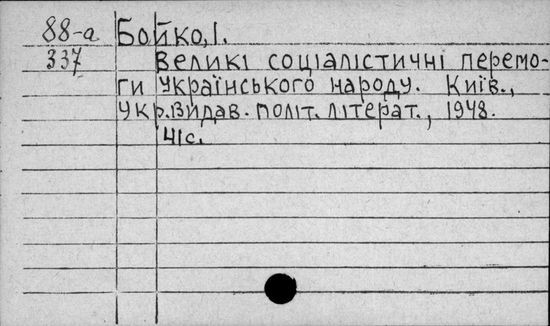 88-а Бойко, І.
337 Великі соціалістичні перемо-
ги Українського народу. Київ.,
Укр. Видав. політ. літерат., 1948.
41с.